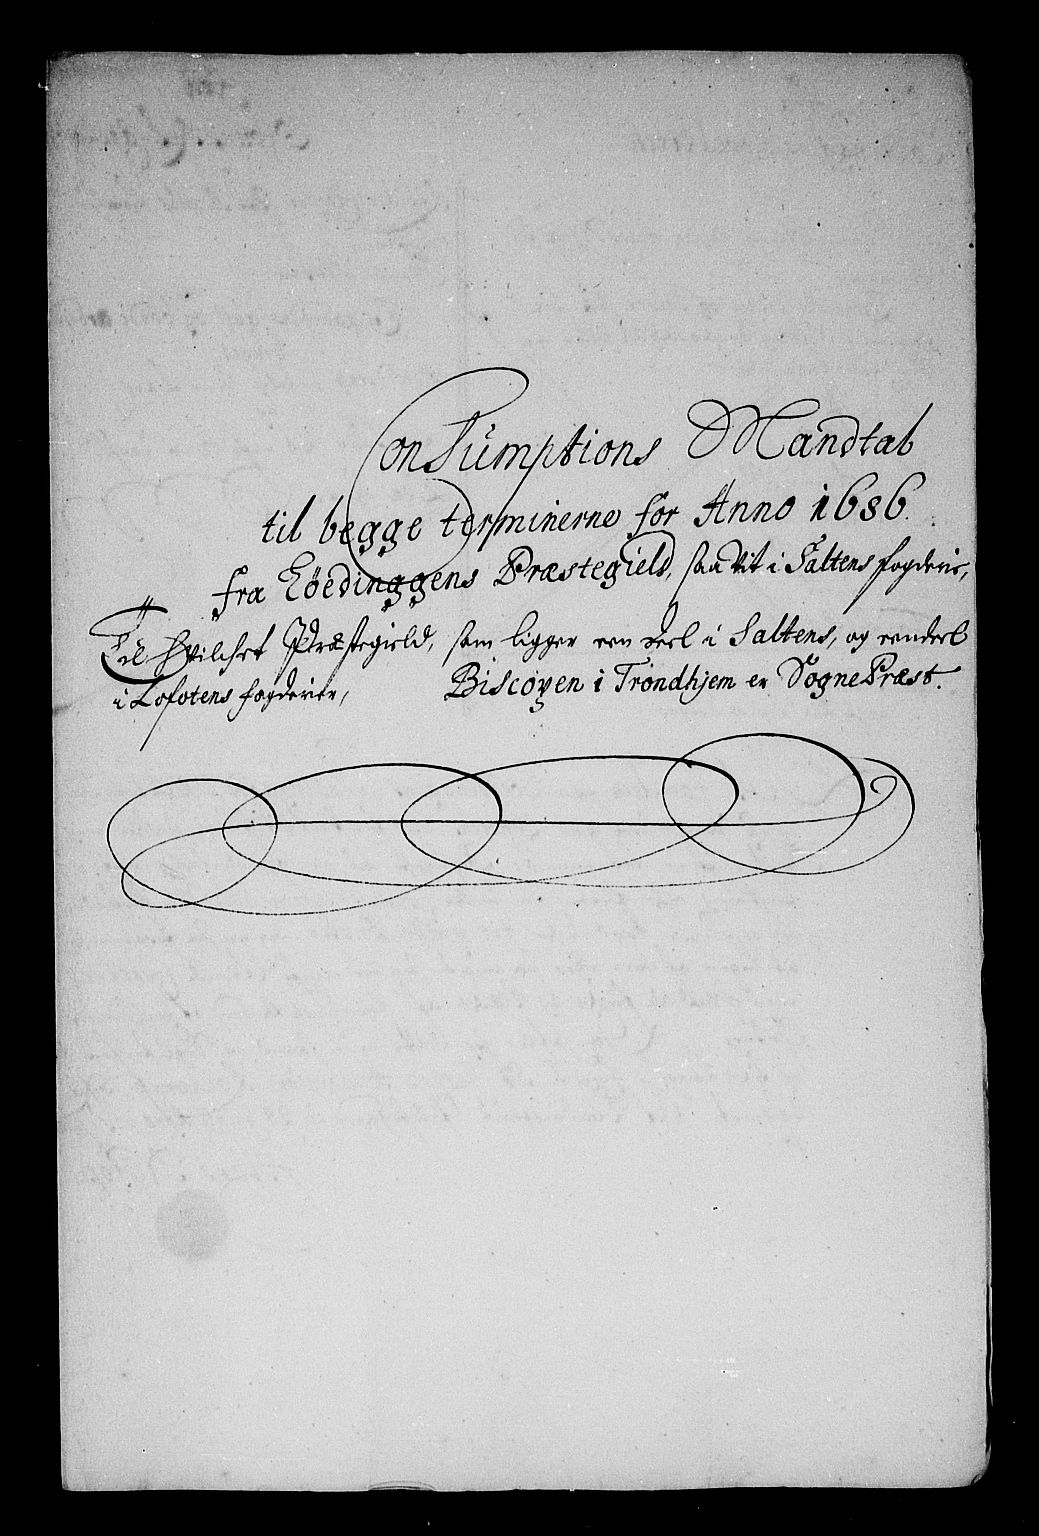 ConSumptions Mandtal
til begge terminerne for Anno 1686.
fra Løedinggens Præstegield, saa Vit i Saltens fogderie,
Til Hvilchet Præstegield, som ligger een deel i Saltens, og eendeel
i Lofotens fogderier, Biscopen i Trondhjem er SognePræst.